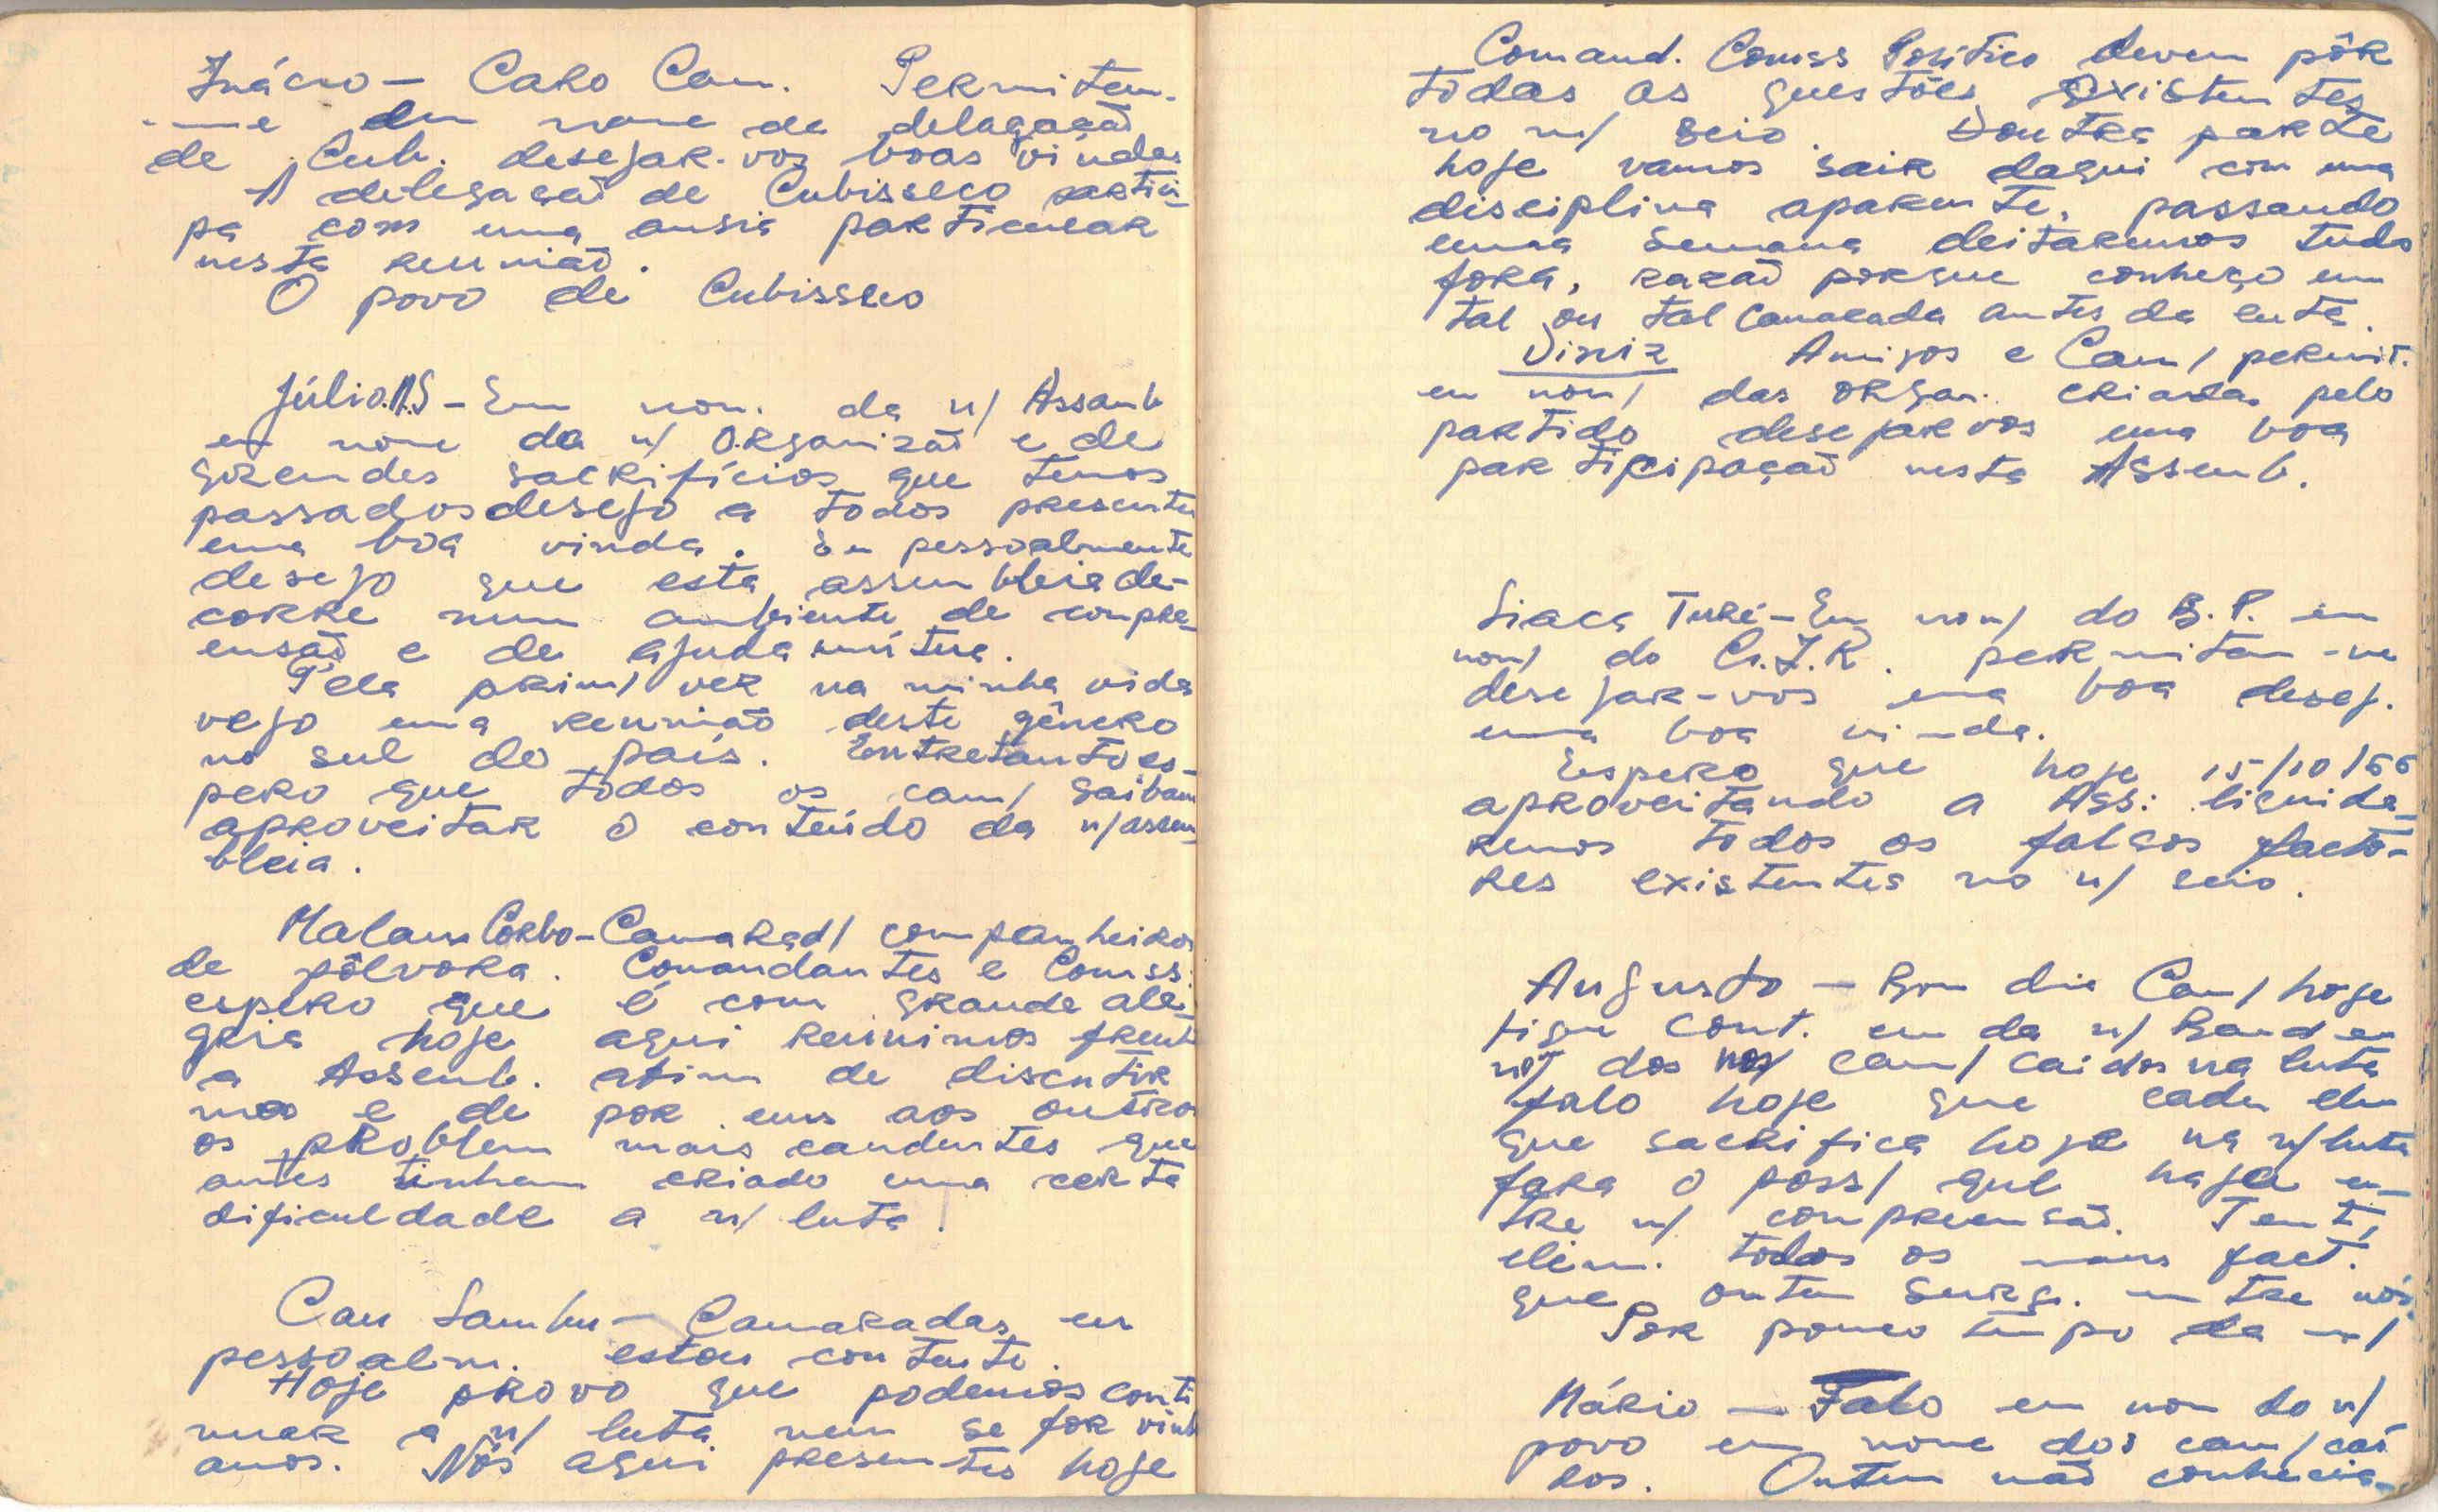 Inácio - Caro Cam. Permitam-
-me em nome da delagação
de Cub. desejar-vos boas vindas
A delegação de Cubisseco partici-
pa com uma ansia particular
nesta reunião.
O povo de Cubisseco
Júlio.N.S - Em nom. da n/ Assemb
em nome da n/ Organizaõ e de
grandes sacrifícios que temos
passados desejo a todos presentes
uma boa vinda. Eu pessoalmente
desejo que esta assembleia de-
corre num ambiente de compre-
ensão e de ajuda mútua.
Pela prim/ vez na minha vida
vejo uma reunião deste género
no sul do país. Entretanto es-
pero que todos os cam/ saibam
aproveitar o conteúdo da n/assem
bleia.
Malam Corbo - Camarad/ companheiros
de pólvora. Comandantes e Comss.
espero que é com grande ale-
gria hoje aqui reunimos frente
a Assemb. afim de discutir
mos e de por uns aos outros
os problem mais candentes que
antes tinham criado uma certa
dificuldade a n/ luta.
Cam Sambu - Camaradas, eu
pessoalm. estou contente.
Hoje provo que podemos conti
nuar a n/ luta nem se for vinte
anos. Nós aqui presentes hoje
Comand. Comss Político devem pôr
todas as questões existentes
no n/ seio. Doutra parte
hoje vamos sair daqui com uma
disciplina aparente, passando
uma semana deitaremos tudo
fora, razão porque conheço um
tal ou tal Camarada antes da luta.
Diniz Amigos e Cam/ permit.
em nom/ das organ. criadas pelo
partido desejar vos uma boa
participação nesta Assemb.
Siaca Turé - Em nom/ do B.P. em
nom/ do C.I.R. permitam-me
desejar-vos uma boa desej.
uma boa vinda.
Espero que hoje 15/10/66
aproveitando a Ass: liquida-
remos todos os falsos facto-
res existentes no n/ seio.
Augusto - Bom dia Cam/ hoje
fiqu cont. em da n/ Band em
no/ dos nos/ cam/ caidos na luta
falo hoje que cada um
que sacrifica hoje na n/luta
fara o poss/ que haja en-
tre n/ compreensão. Tent/
elim. todos os maus fact.
que ontem surg. entre nós.
Por pouco tempo da n/
Mário - Falo em nom do n/
povo em nome dos cam/ caí
dos. Ontem não conhecia-